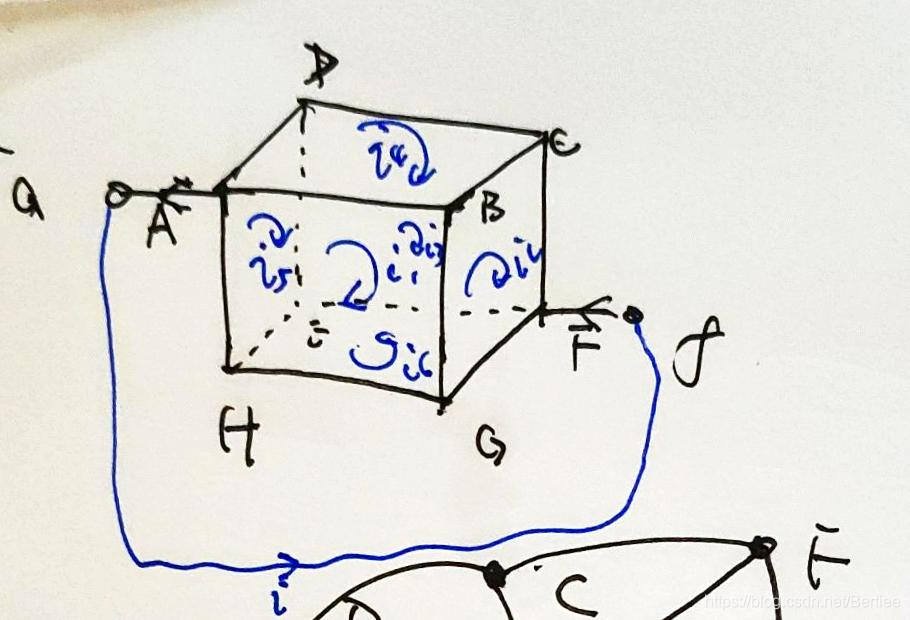 D
C
i4
a
A
B
i5
i1
i3
i6
F
f
H
G
i
C
F
https://blog.csdn.net/Bertiee